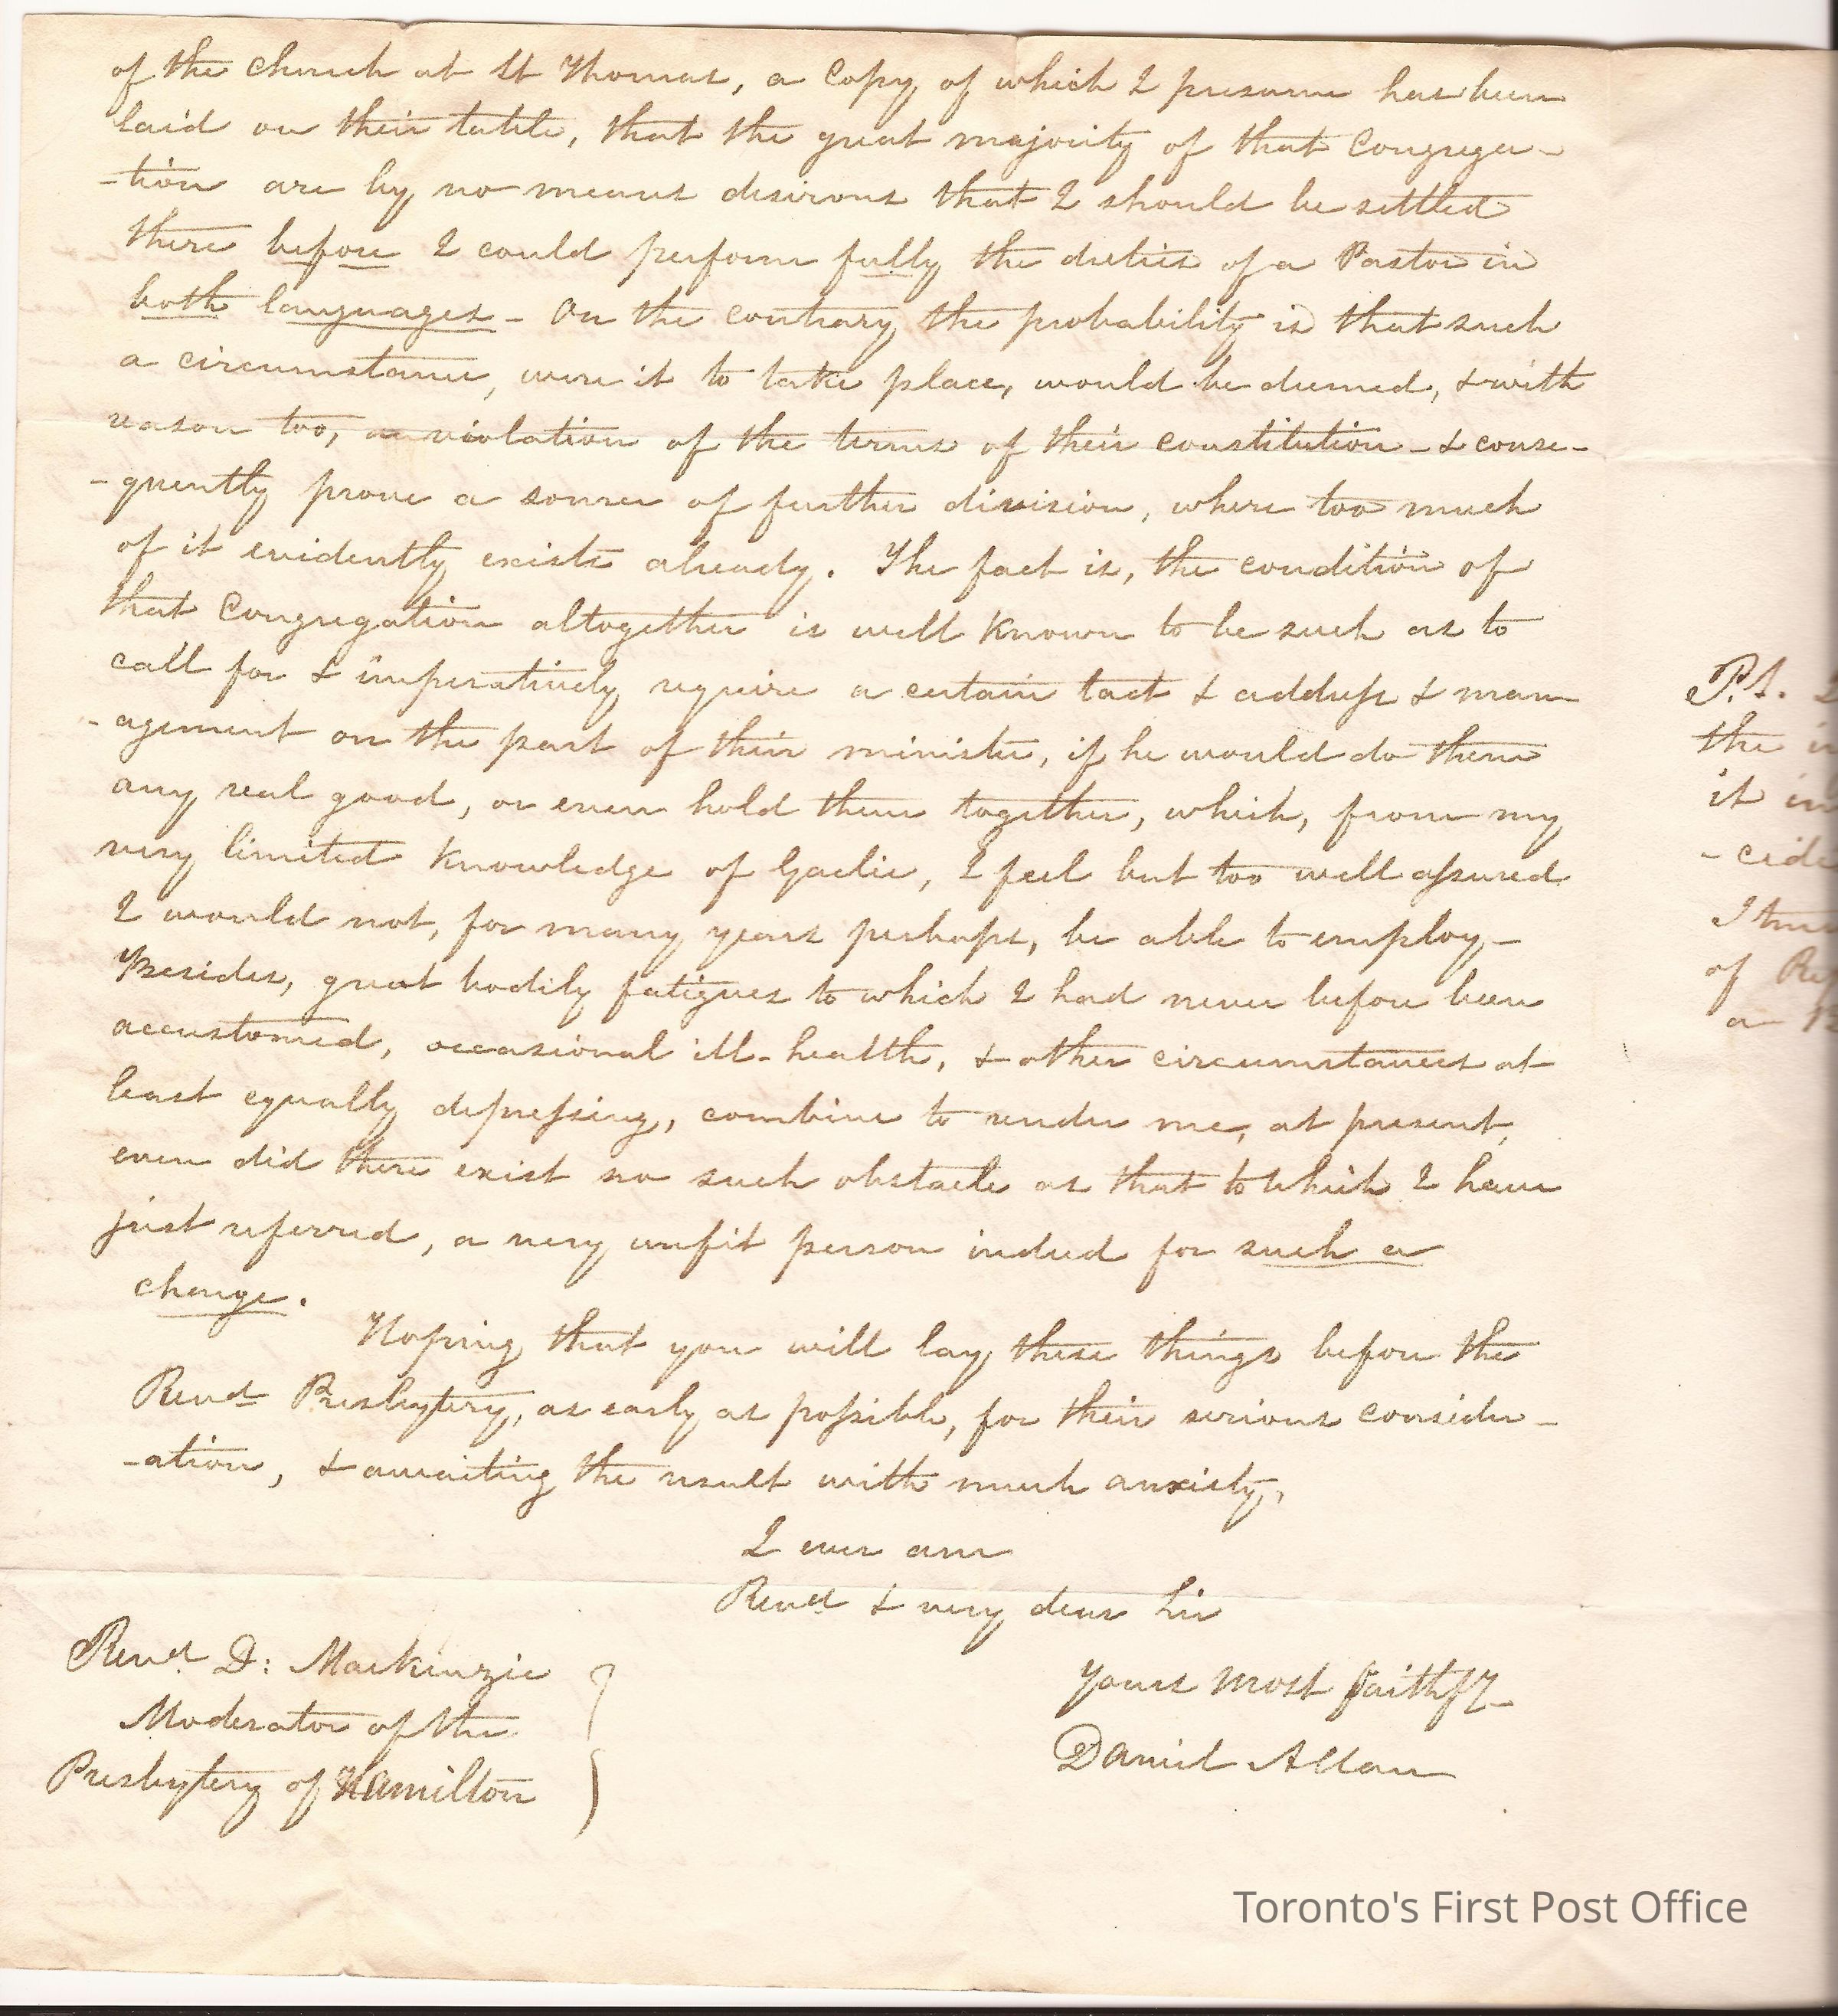 of the church at St Thomas, a Copy of which I presume has been
laid on their table, that the great majority of that Congrega-
-tion are by no means desirous that I should be settled
there before I could perform fully the duties of a Pastor in
both languages - On the contrary the probability is that such
a circumstance, were it to take place, would be deemed, & with
reason too, a violation of the terms of their constitution - & conse-
-quently prove a source of further division, where too much
of it evidently exists already. The fact is, the condition of
that Congregation altogether is well known to be such as to
call for & imperatively require a certain tact & address & man-
-agement on the part of their minister, if he would do them
any real good, or even hold them together, which, from my
very limited knowledge of Gaelic, I feel but too well assured
I would not, for many years perhaps, be able to employ -
Besides, great bodily fatigues to which I had never before been
accustomed, occasional ill-health, & other circumstances at
least equally depressing, combine to render me, at present,
even did there exist no such obstacle as that to which I have
just referred, a very unfit person indeed for such a
charge.
Hoping that you will lay these things before the
Revd Presbytery, as early as possible, for their serious consider-
-ation, & awaiting the result with much anxiety,
I ever am
Revd & very dear Sir
Yours most faithfy
Daniel Allan
Revd. D: Mackenzie
Moderator of the
Presbytery of Hamilton
P.S. I
the
it
-cide
I
of
a
Toronto's First Post Office